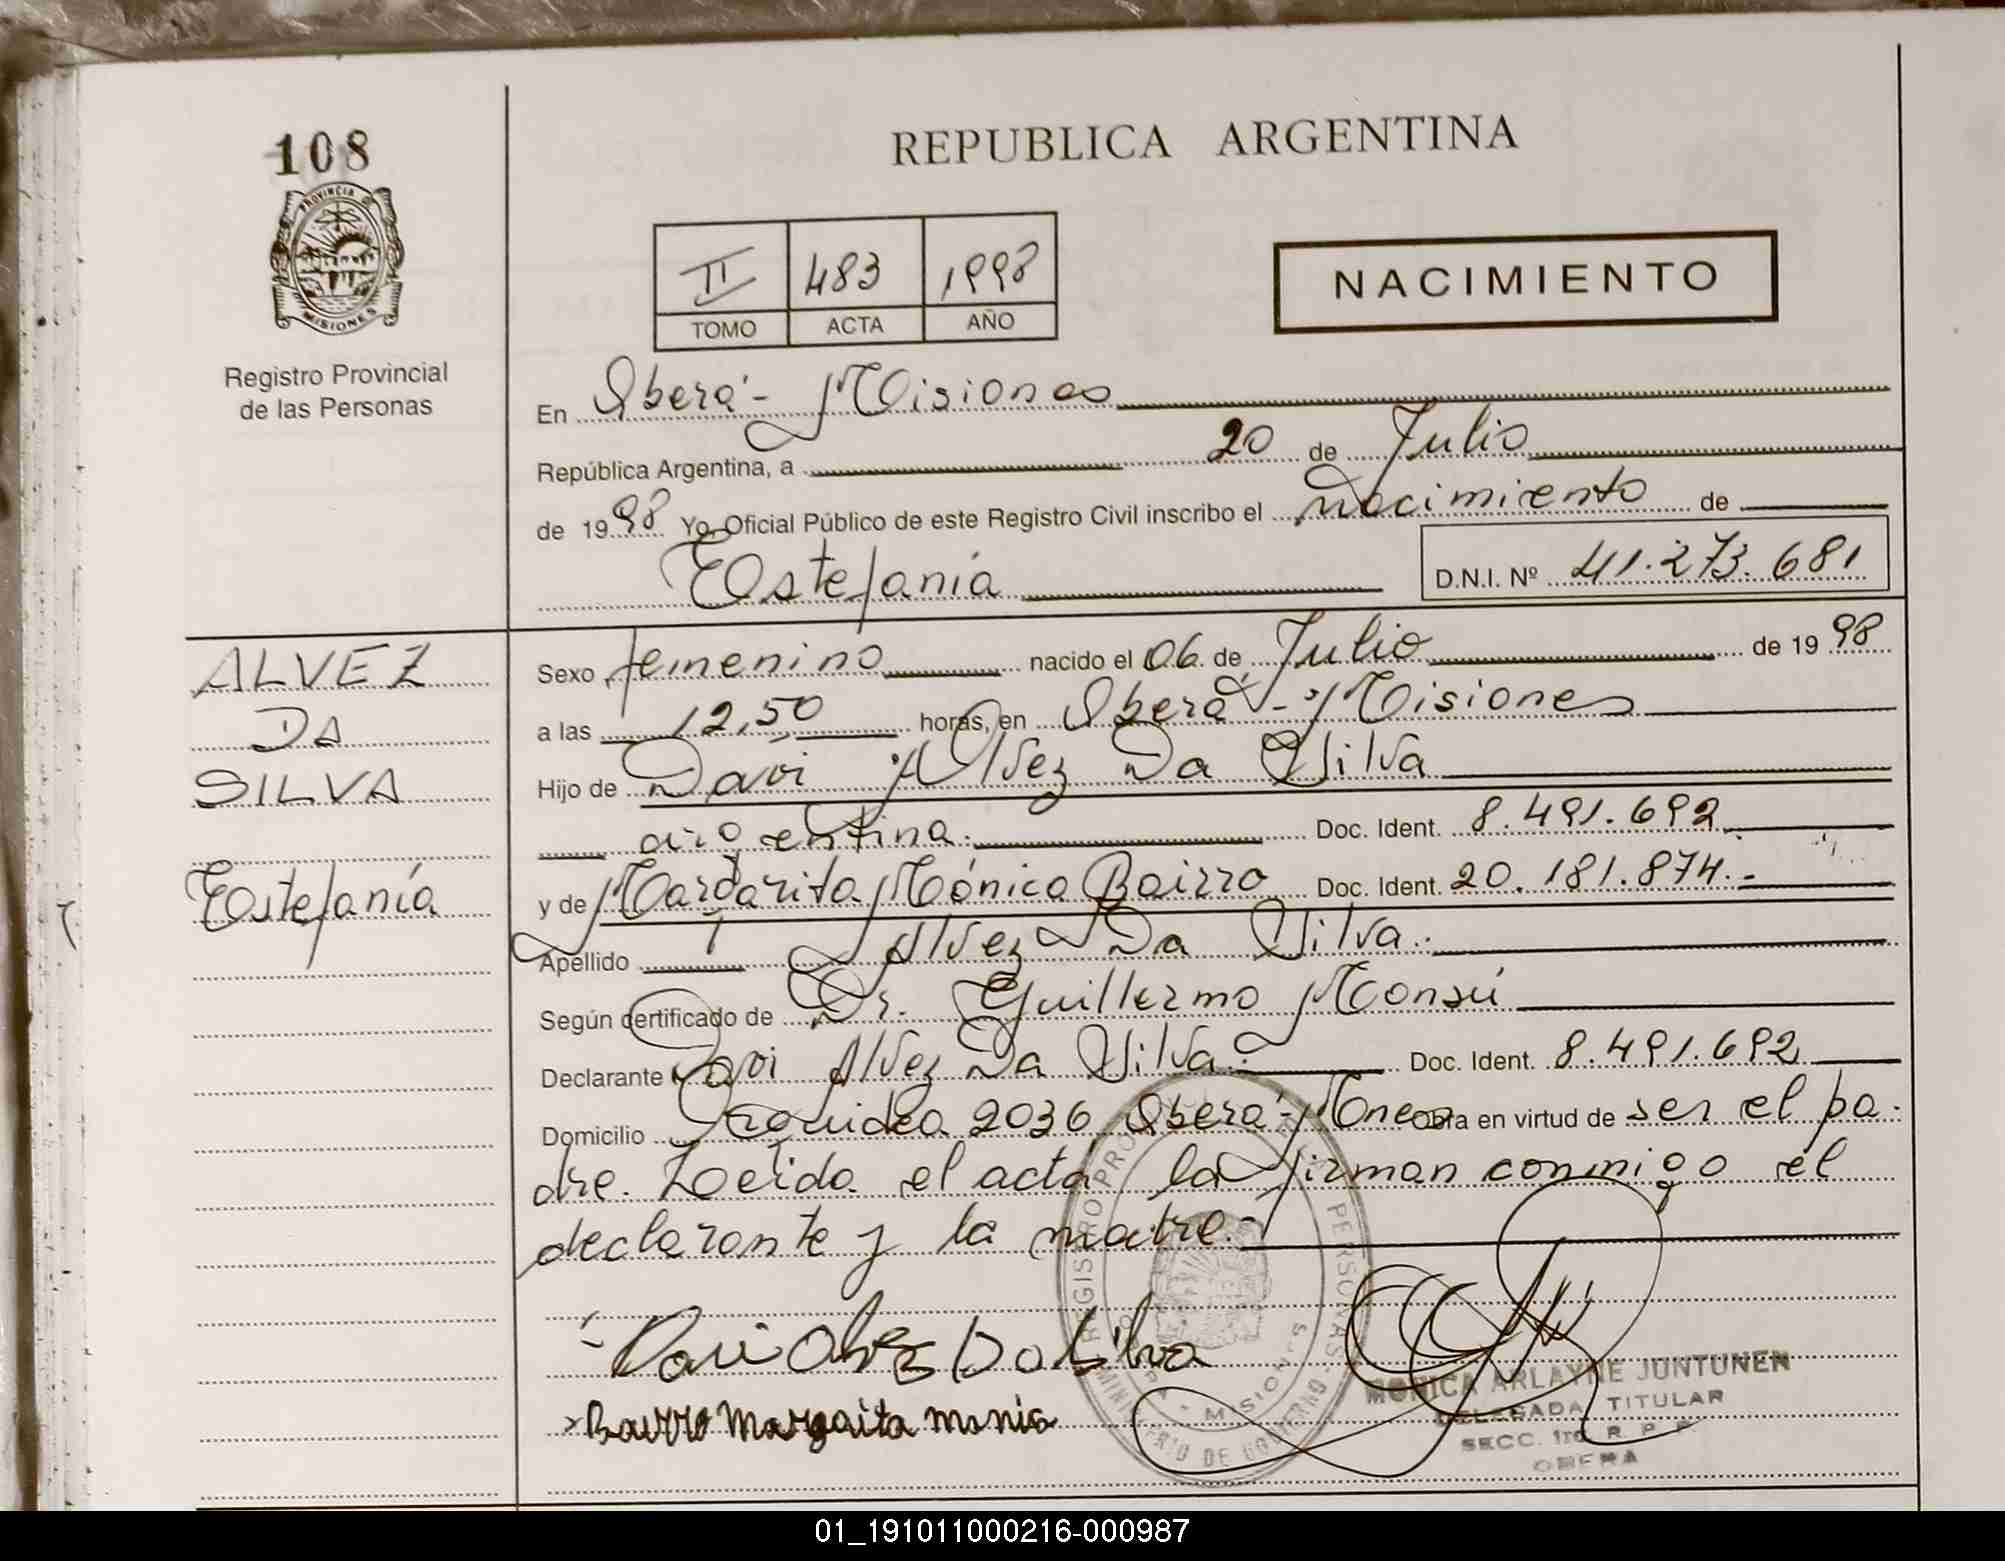 108
PROVINCIA
MISIONES
Registro Provincial
de las Personas
REPUBLICA ARGENTINA
II 483 1998
TOMO ACTA AÑO
NACIMIENTO
En Oberá - Misiones
República Argentina, a 20 de Julio
de 1998 Yo, Oficial Público de este Registro Civil inscribo el nacimiento de
Estefanía D.N.I. Nº 41.273.681
ALVEZ
DA
SILVA
Estefanía
Sexo femenino nacido el 06 de Julio de 1998
a las 12,50 horas, en Oberá - Misiones
Hijo de Davi Alvez Da Silva
argentina. Doc. Ident. 8.491.692
y de Margarita Mónica Bairro Doc. Ident. 20.181.874.-
Apellido Alvez Da Silva.
Según certificado de Dr. Guillermo Monsú
Declarante Davi Alvez Da Silva. Doc. Ident. 8.491.692
Domicilio Orquidea 2036 Oberá - Mnes Obra en virtud de ser el pa-
dre. Leída el acta la firman conmigo el
declarante y la madre.-
Davi Alvez Da Silva
Bairro Margarita Monica
REGISTRO PROVINCIAL DE LAS PERSONAS
MINISTERIO DE GOBIERNO
MISIONES
MONICA ARLAYNE JUNTUNEN
DELEGADA TITULAR
SECC. 1ra. R. P. P.
OBERA
01_191011000216-000987